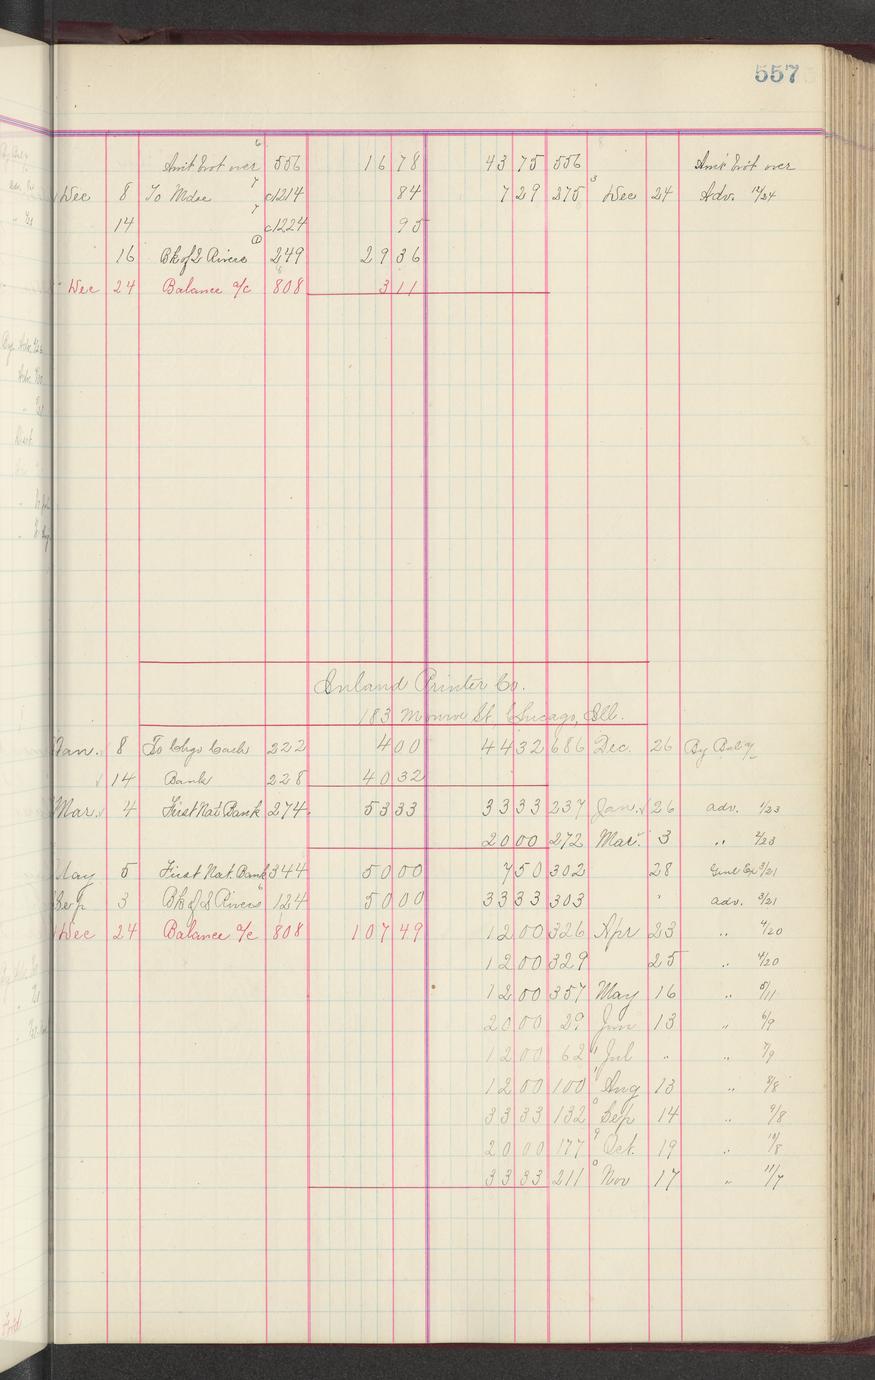 557
Am't brot over 556 16 78 43 75 556 Am't brot over
Dec 8 To Mdse 7 c1214 84 7 29 275 3 Dec 24 Adv. 12/24
14 7 c1224 95
16 Bk of 2 Rivers 249 29 36
Dec 24 Balance a/c 808 3 11
Inland Printer Co.
183 Monroe St. Chicago, Ill.
Jan. 8 To Chgo Cash 222 4 00 44 32 686 Dec. 26 By
14 Bank 228 40 32
Mar. 4 First Nat Bank 274 53 33 33 33 237 Jan. 26 adv. 1/23
20 00 272 Mar. 3 " 2/23
May 5 First Nat. Bank 344 50 00 7 50 302 28 Genl Ex 3/21
Sep 3 Bk of 2 Rivers 124 50 00 33 33 303 " adv. 3/21
Dec 24 Balance a/c 808 107 49 12 00 326 Apr 23 " 4/20
12 00 329 25 " 4/20
12 00 357 May 16 " 5/11
20 00 29 Jun 13 " 6/9
12 00 62 Jul " " 7/9
12 00 100 Aug 13 " 8/8
33 33 132 Sep 14 " 9/8
20 00 177 Oct. 19 " 10/8
33 33 211 Nov 17 " 11/7